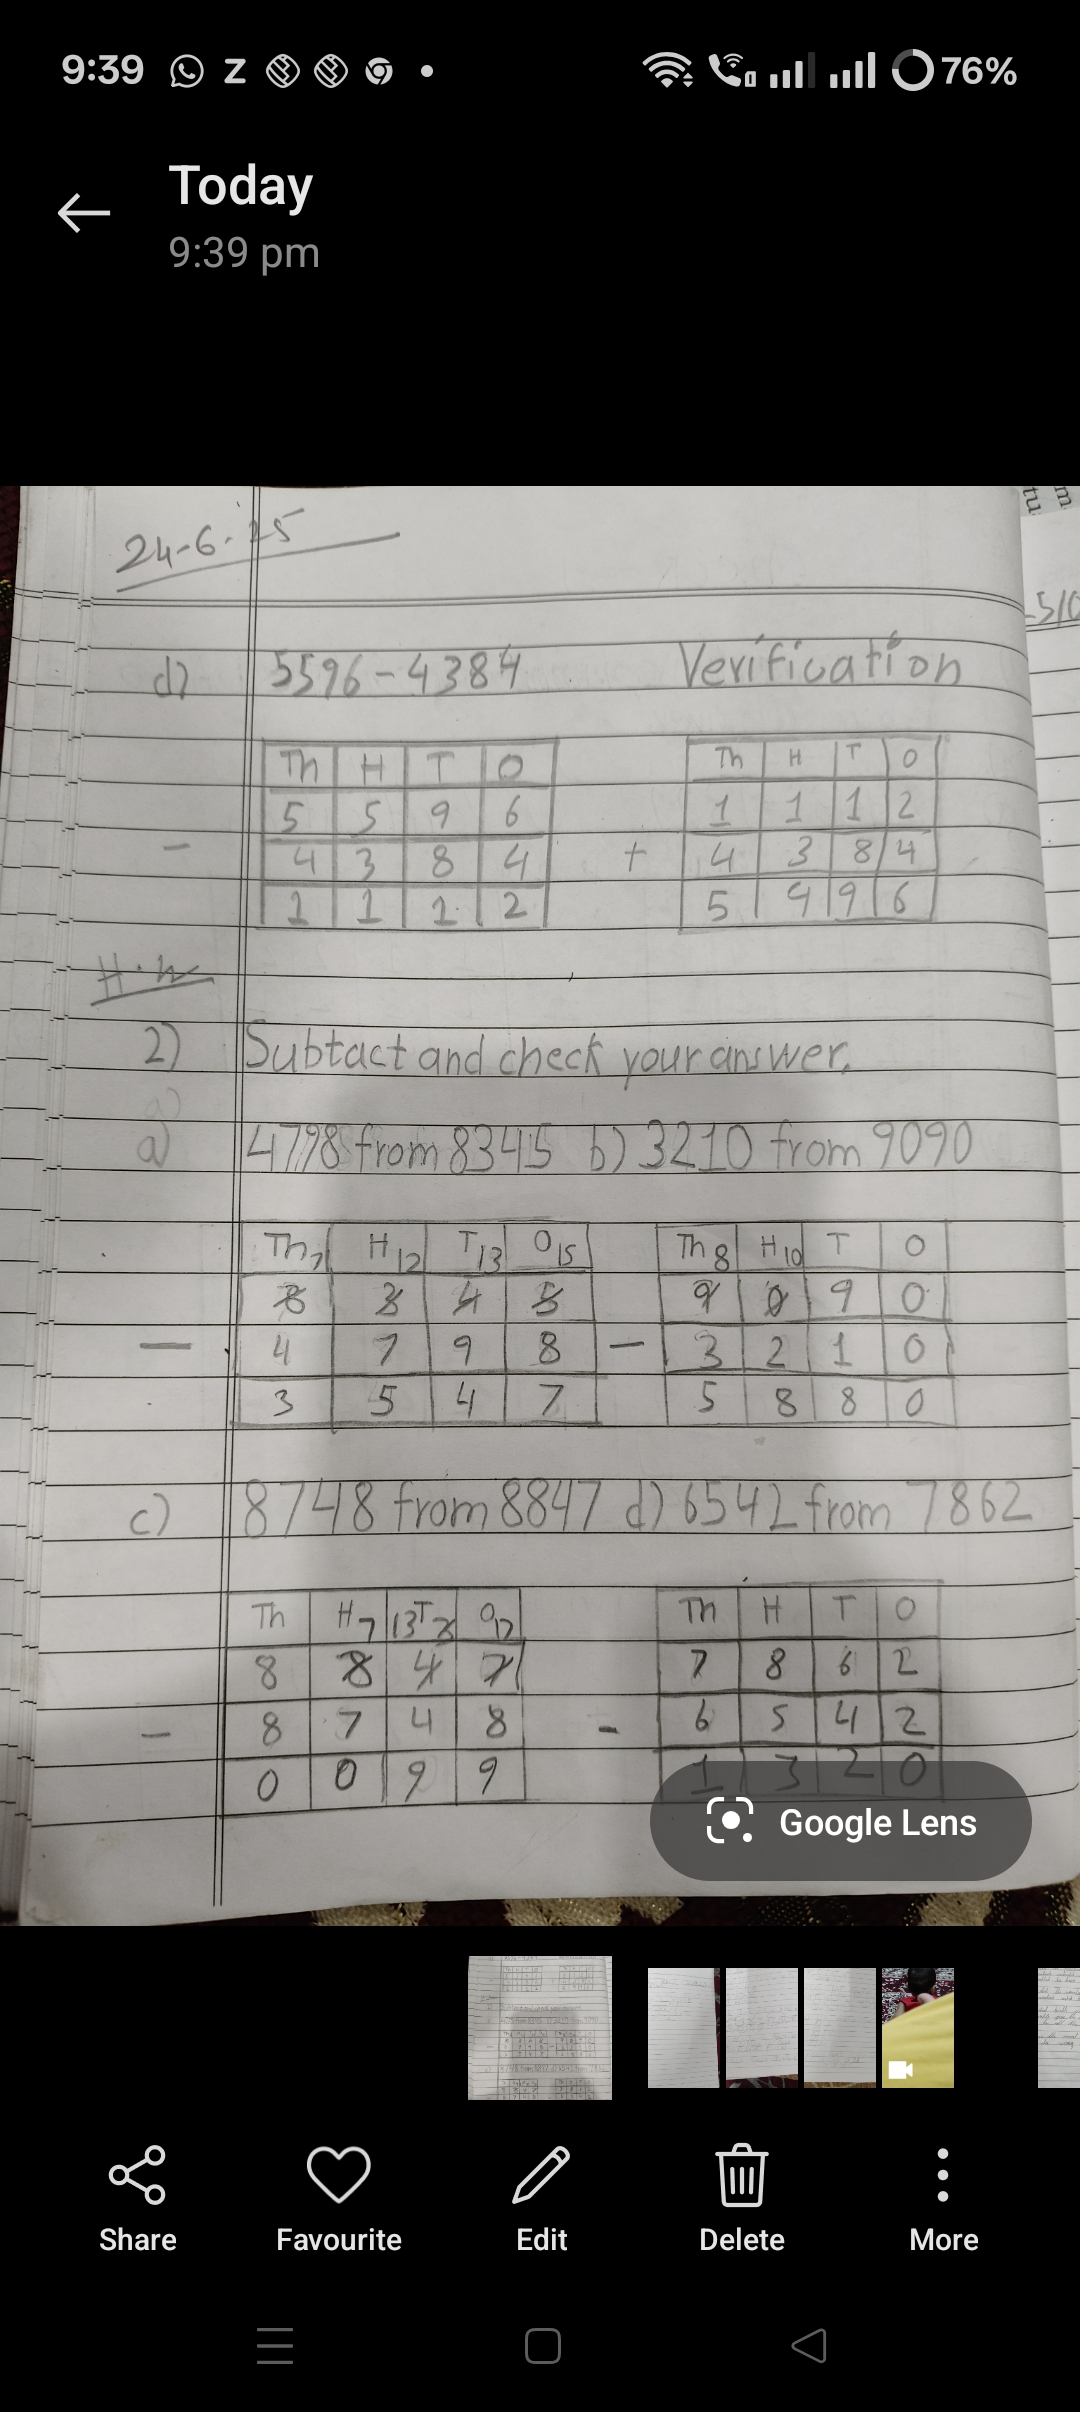 9:39 Z 76%
Today
9:39 pm
24-6-25
d) 5596-4384 Verification
Th H T O Th H T O
5 5 9 6 1 1 1 2
- 4 3 8 4 + 4 3 8 4
1 1 1 2 5 4 9 6
H.W
2) Subtact and check your answer.
a)
a) 4798 from 8345 b) 3210 from 9090
Th7 H12 T13 O15 Th8 H10 T O
8 3 4 5 9 0 9 0
- 4 7 9 8 - 3 2 1 0
3 5 4 7 5 8 8 0
c) 8748 from 8847 d) 6542 from 7862
Th H7 13T3 O17 Th H T O
8 8 4 7 7 8 6 2
- 8 7 4 8 - 6 5 4 2
0 0 9 9 1 3 2 0
Google Lens
Share Favourite Edit Delete More